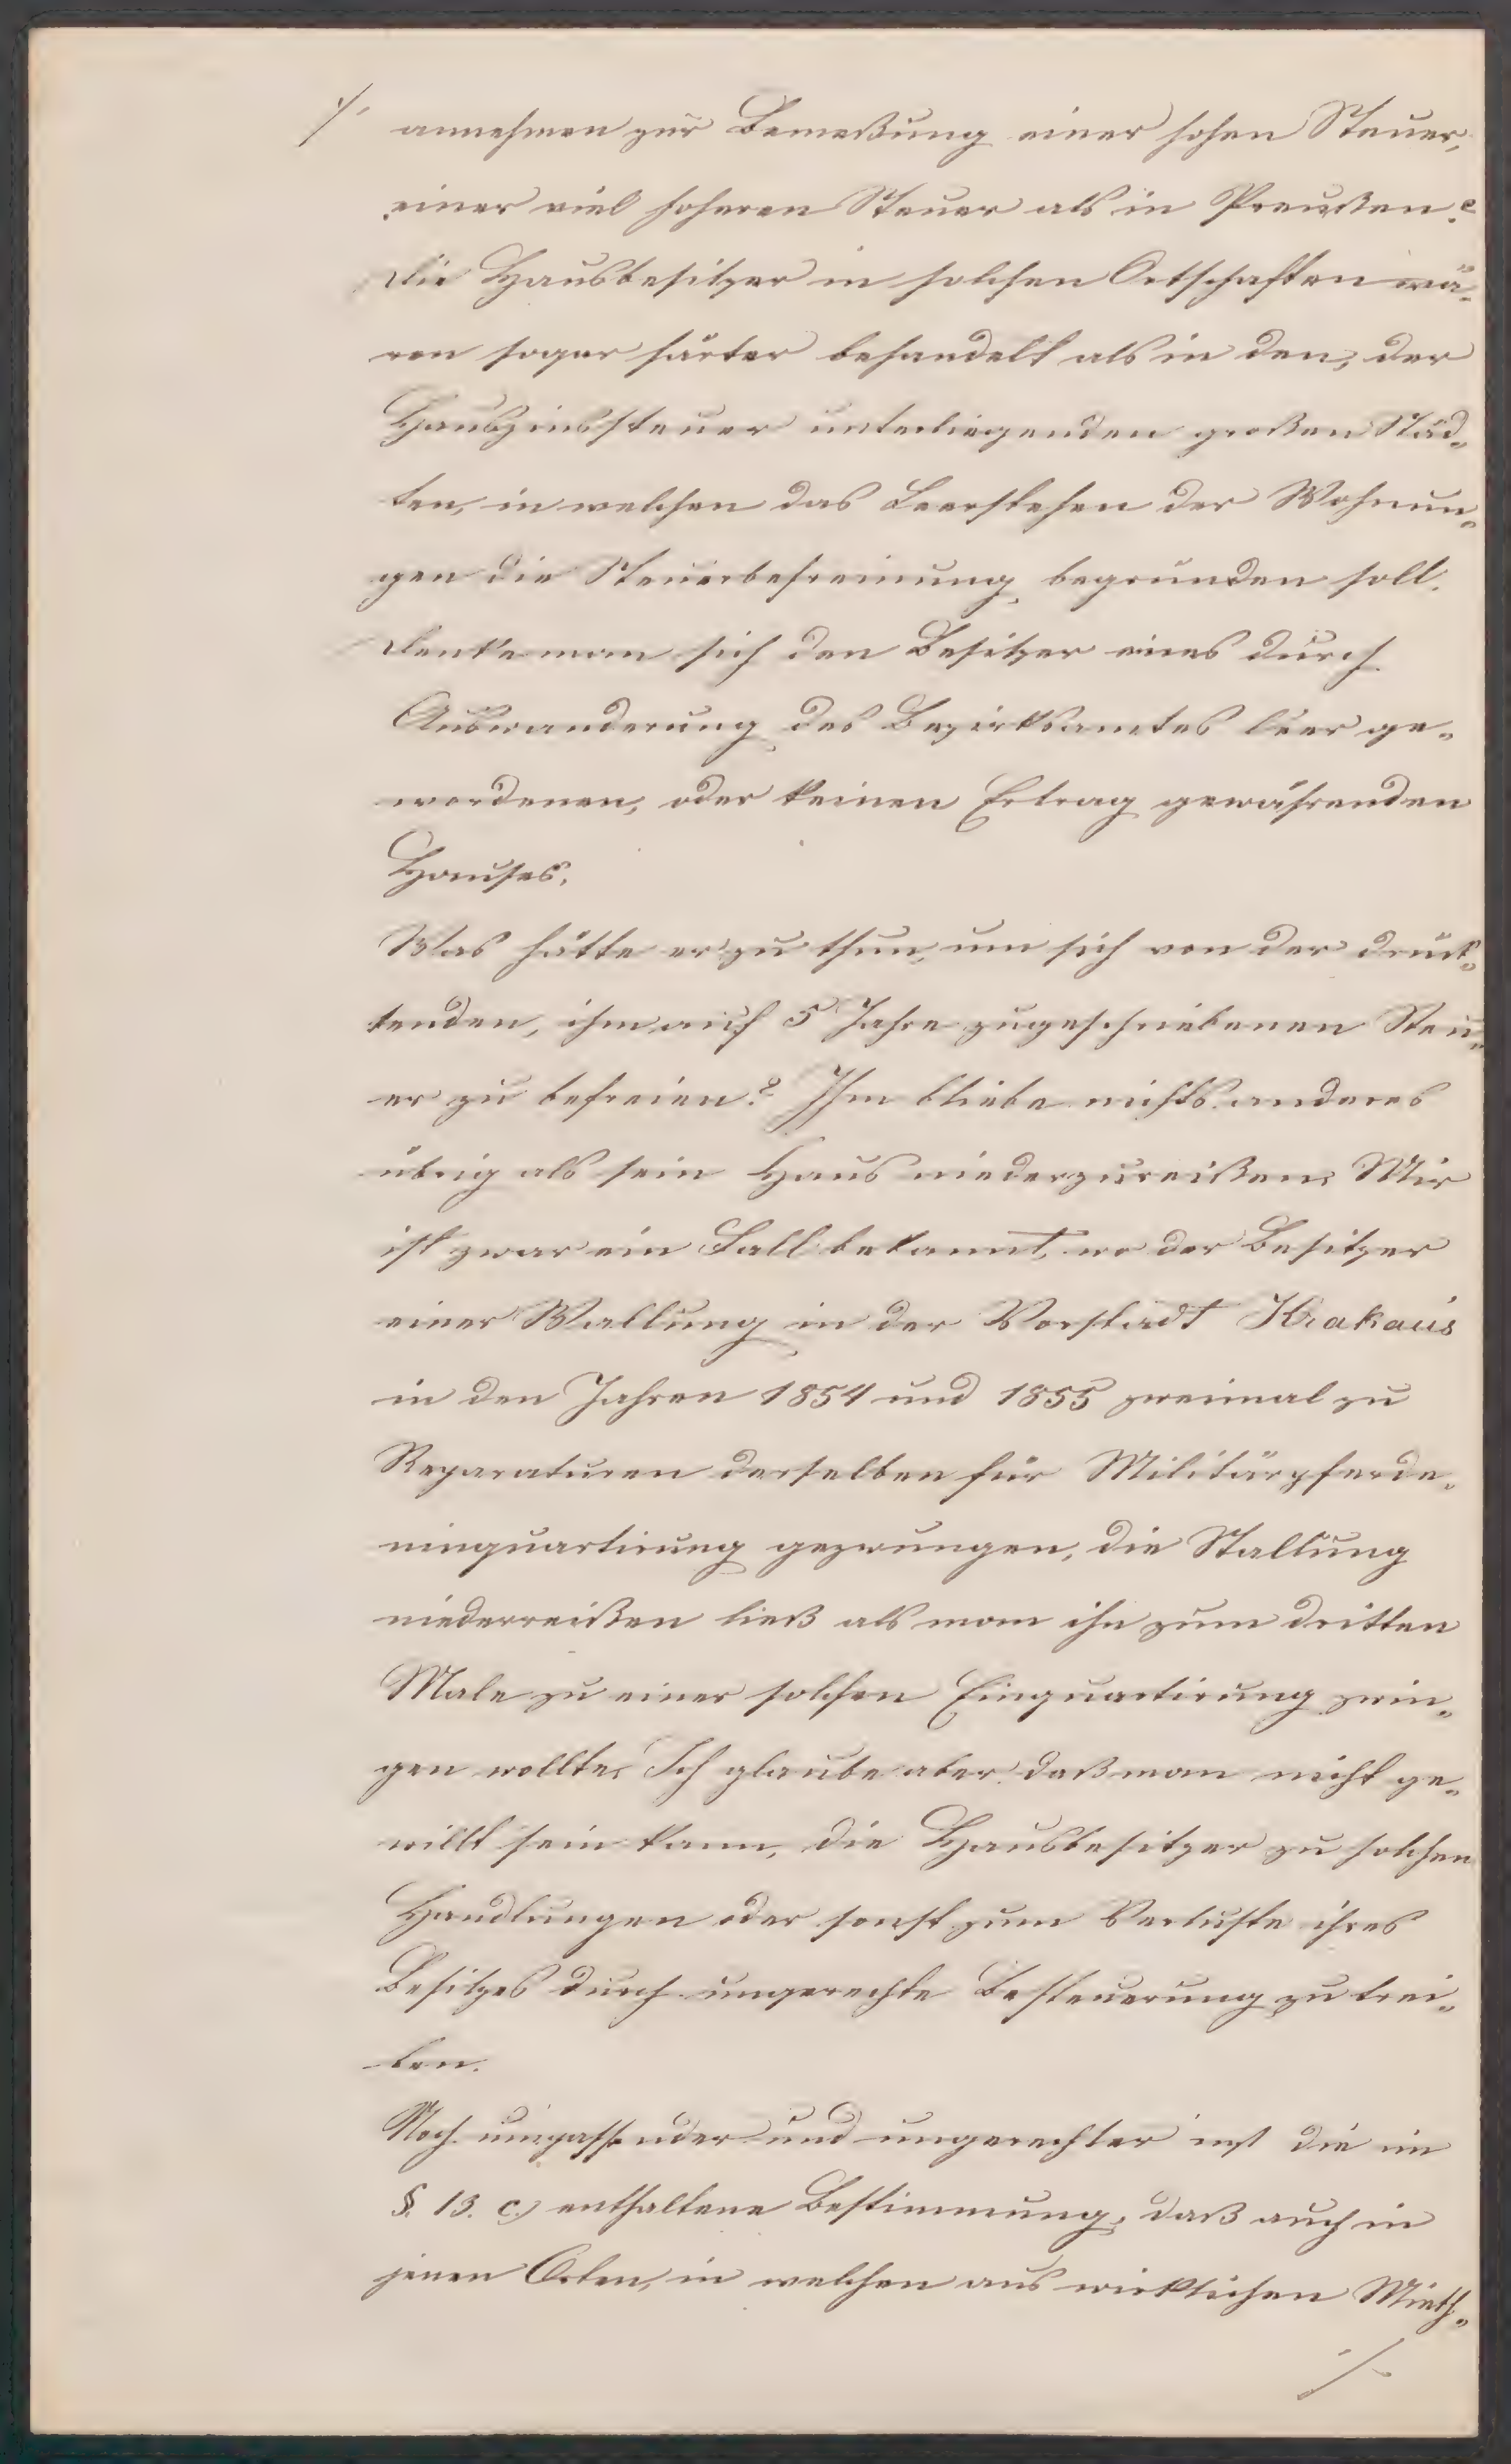 ./. annehmen zur Bemeßung einer hohen Steuer,
einer viel höheren Steuer als in Preußen?
Die Hausbesitzer in solchen Ortschaften wä-
ren sogar härter behandelt als in den, der
Hauszinssteuer unterliegenden großen Städ-
ten, in welchen das Leerstehen der Wohnun-
gen die Steuerbefreiung begründen soll.
Denke man sich den Besitzer eines durch
Auswanderung des Bezirksamtes leer ge-
wordenen, oder keinen Ertrag gewährenden
Hauses.
Was hätte er zu thun, um sich von der drück-
kenden, ihm auf 5 Jahre zugeschriebenen Steu-
er zu befreien? Ihm bliebe nichts anderes
übrig als sein Haus niederzureißen. Mir
ist zwar ein Fall bekannt, wo der Besitzer
einer Stallung in der Vorstadt Krakau's
in den Jahren 1854 und 1855 zweimal zu
Reparaturen derselben für Militärpferde-
einquartirung gezwungen, die Stallung
niederreißen ließ als man ihn zum dritten
Male zu einer solchen Einquartirung zwin-
gen wollte. Ich glaube aber daß man nicht ge-
willt sein kann, die Hausbesitzer zu solchen
Handlungen oder sonst zum Verluste ihres
Besitzes durch ungerechte Besteuerung zu trei-
ben.
Noch unpassender und ungerechter ist die im
§. 13. c.) enthaltene Bestimmung, daß auch in
jenen Orten, in welchen aus wirklichen Mieth-
./.